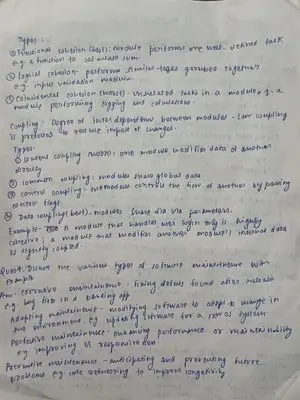 Types:
① Functional cohesion (best): module performs one well-defined task
e.g a function to calculate sum.
② logical cohesion- performs similar tasks grouped together
e.g. input validation module.
③ Coincidental cohesion (worst)- unrelated task in a module e.g- a
module performing logging and calculations.
Coupling: Degree of interdependence between modules- Low coupling
is preferred to reduce impact of changes.
Types-
① Content coupling (worst): one module modifies data of another
directly
② common coupling: modules share global data
③ control coupling: one module controls the flow of another by passing
control flags.
④ Data coupling (best)- modules share data via parameters.
Example- A module that handles user login only is highly
cohesive; a module that modifies another module's internal data
is tightly coupled
Quest. Discuss the various types of software maintenance with
Example
Ans. corrective maintenance: fixing defects found after release
e.g bug fix in a banking app
Adaptive maintenance- modifying software to adapt to change in
the environment. e.g updating software for a new os system
Perfective maintenance- enhancing performance or maintainability
e.g improving UI responsiveness
Preventive maintenance- anticipating and preventing future
problems e.g. code refactoring to improve longetivity